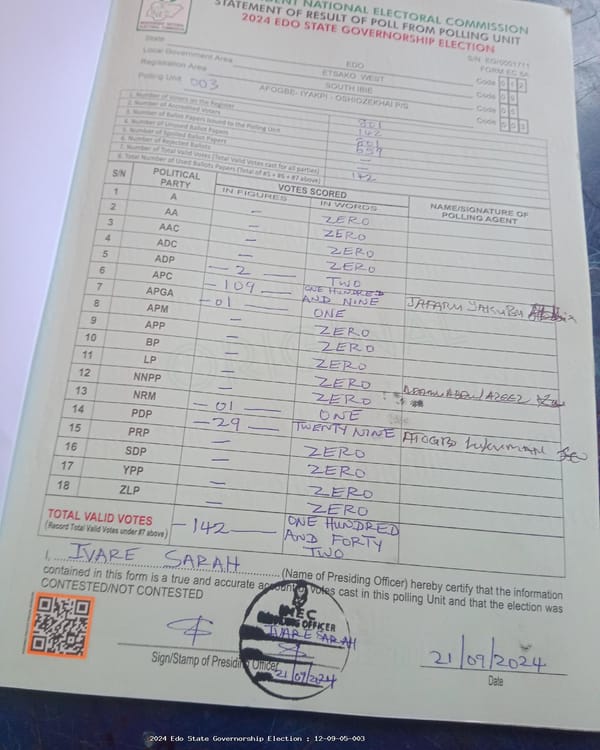 INDEPENDENT NATIONAL ELECTORAL COMMISSION
STATEMENT OF RESULT OF POLL FROM POLLING UNIT
2024 EDO STATE GOVERNORSHIP ELECTION
S/N EG/0001711
FORM EC 8A
State EDO Code 012
Local Government Area ETSAKO WEST Code 09
Registration Area SOUTH IBIE Code 05
Polling Unit 003 AFOGBE- IYAKPI - OSHIOZEKHAI P/S Code 003
1. Number of Voters on the Register 801
2. Number of Accredited Voters 142
3. Number of Ballot Papers Issued to the Polling Unit 801
4. Number of Unused Ballot Papers 659
5. Number of Spoiled Ballot Papers —
6. Number of Rejected Ballots —
7. Number of Total Valid Votes (Total Valid Votes cast for all parties)
8. Total Number of Used Ballots Papers (Total of #5 + #6 + #7 above) 142
S/N POLITICAL PARTY VOTES SCORED NAME/SIGNATURE OF POLLING AGENT
IN FIGURES IN WORDS
1 A – ZERO
2 AA – ZERO
3 AAC – ZERO
4 ADC – ZERO
5 ADP – 2 — TWO
6 APC – 109 — ONE HUNDRED AND NINE JAFARU YAKUBU
7 APGA – 01 — ONE
8 APM – ZERO
9 APP – ZERO
10 BP – ZERO
11 LP – ZERO
12 NNPP – ZERO
13 NRM – 01 — ONE
14 PDP – 29 — TWENTY NINE AFOGBO LUKUMAN
15 PRP – ZERO
16 SDP – ZERO
17 YPP – ZERO
18 ZLP – ZERO
TOTAL VALID VOTES – 142 — ONE HUNDRED AND FORTY TWO
(Record Total Valid Votes under #7 above)
I, IVARE SARAH (Name of Presiding Officer) hereby certify that the information
contained in this form is a true and accurate account of votes cast in this polling Unit and that the election was
CONTESTED/NOT CONTESTED
INEC
OFFICER
IVARE SARAH
21/09/2024
Sign/Stamp of Presiding Officer
21/09/2024
Date
2024 Edo State Governorship Election : 12-09-05-003